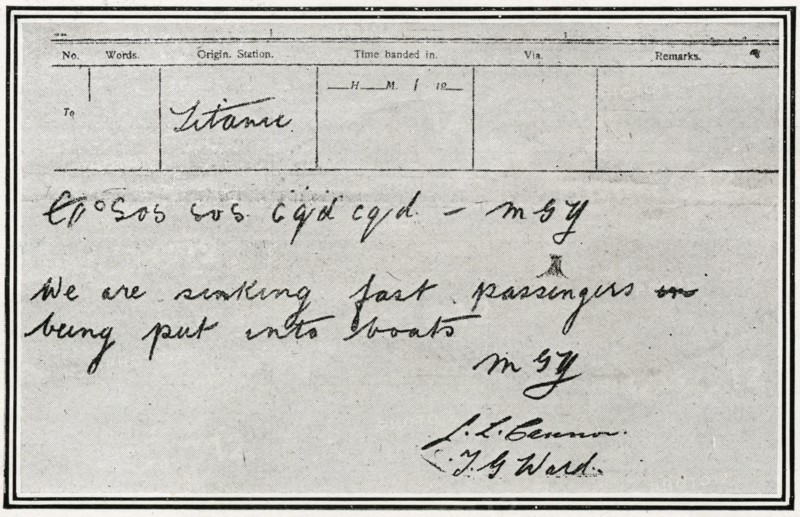 No. Words. Origin. Station. Time handed in. Via. Remarks.
To Titanic H. M. 19
Sos Sos cqd cqd - MGY
We are sinking fast passengers
being put into boats
MGY
T. G. Ward.